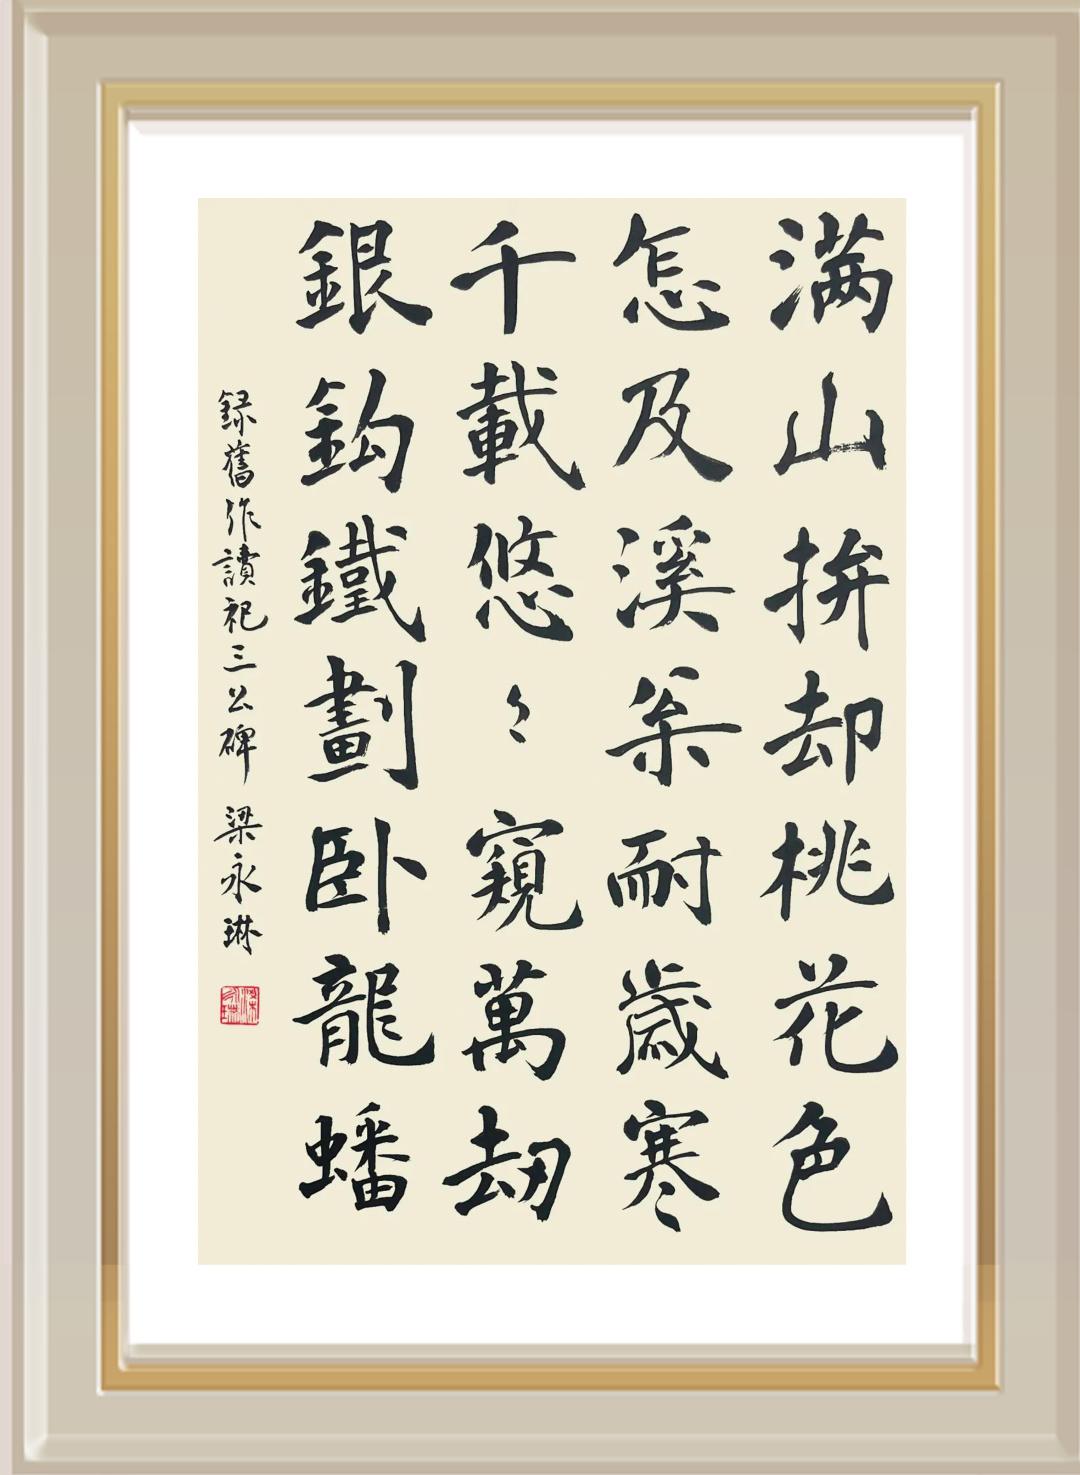 满山拚却桃花色
怎及溪柔耐歲寒
千載悠〻窺萬劫
銀鈎鐵劃卧龍蟠
録舊作讀祀三公碑 梁永琳